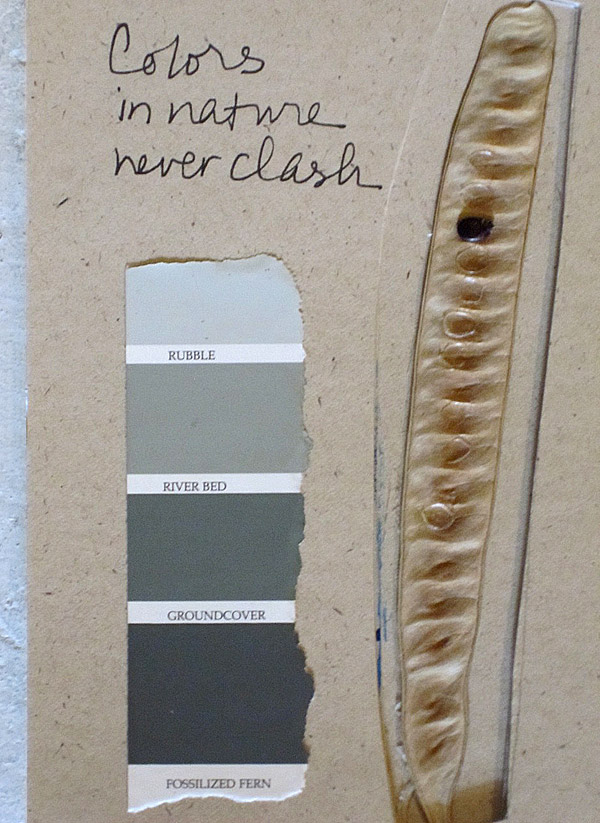 Colors
in nature
never clash
RUBBLE
RIVER BED
GROUNDCOVER
FOSSILIZED FERN